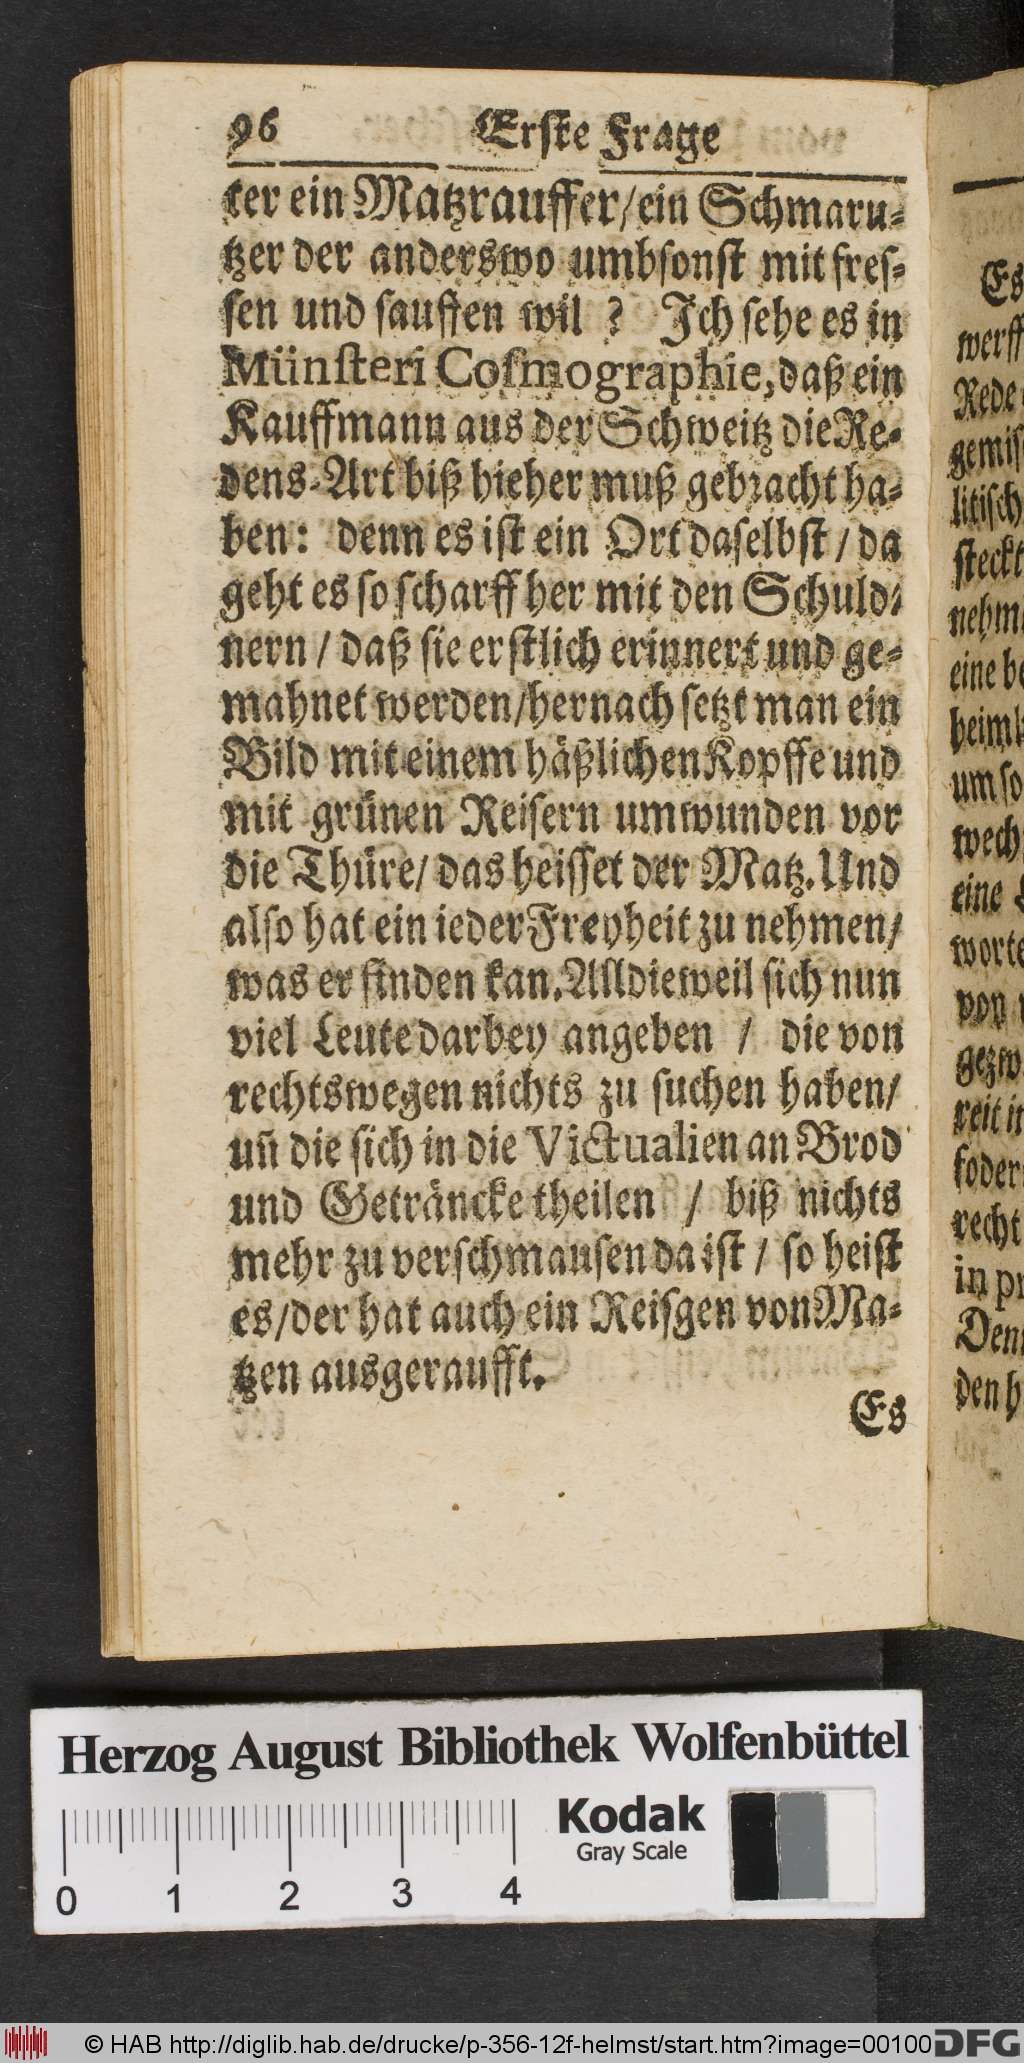 96 Erste Frage
ter ein Matzrauffer/ein Schmaru-
tzer der anderswo umbsonst mit fres-
sen und sauffen wil ? Ich sehe es in
Münsteri Cosmographie, daß ein
Kauffmann aus der Schweitz die Re-
dens-Art biß hieher muß gebracht ha-
ben: denn es ist ein Ort daselbst / da
geht es so scharff her mit den Schuld-
nern / daß sie erstlich erinnert und ge-
mahnet werden/hernach setzt man ein
Bild mit einem häßlichen Kopffe und
mit grünen Reisern umwunden vor
die Thüre/ das heisset der Matz. Und
also hat ein ieder Freyheit zu nehmen/
was er finden kan. Alldieweil sich nun
viel Leute darbey angeben / die von
rechtswegen nichts zu suchen haben/
uñ die sich in die Victualien an Brod
und Geträncke theilen / biß nichts
mehr zu verschmausen da ist / so heist
es/der hat auch ein Reisgen von Ma-
tzen ausgeraufft.
Es
Es
werff
Rede
gemis
litisch
steckt
nehm
eine be
heiml
um so
wech
eine
worte
von
gezw
reit i
foder
recht
in pr
Den
den h
Herzog August Bibliothek Wolfenbüttel
Kodak
Gray Scale
0 1 2 3 4
© HAB http://diglib.hab.de/drucke/p-356-12f-helmst/start.htm?image=00100
DFG